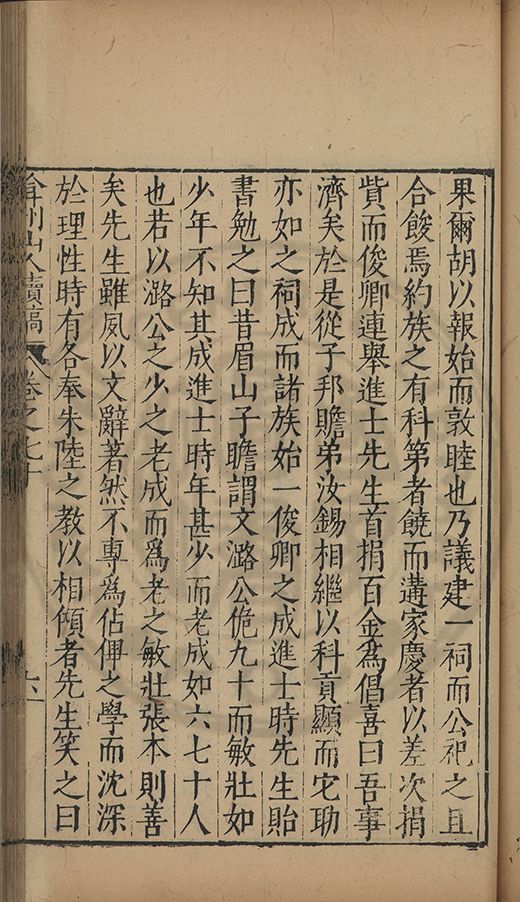 果爾胡以報始而敦睦也乃議建一祠而公祀之且
合餕焉約族之有科第者饒而遘家慶者以差次捐
貲而俊卿連舉進士先生首捐百金為倡喜曰吾事
濟矣於是從子邦瞻弟汝錫相繼以科貢顯而宅助
亦如之祠成而諸族始一俊卿之成進士時先生貽
書勉之曰昔眉山子瞻謂文潞公俺九十而敏壯如
少年不知其成進士時年甚少而老成如六七十人
也若以潞公之少之老成而為老之敏壯張本則善
矣先生雖夙以文辭著然不專為佔俾之學而沈深
於理性時有各奉朱陸之教以相傾者先生笑之曰
弇州山人續稿
卷之七十